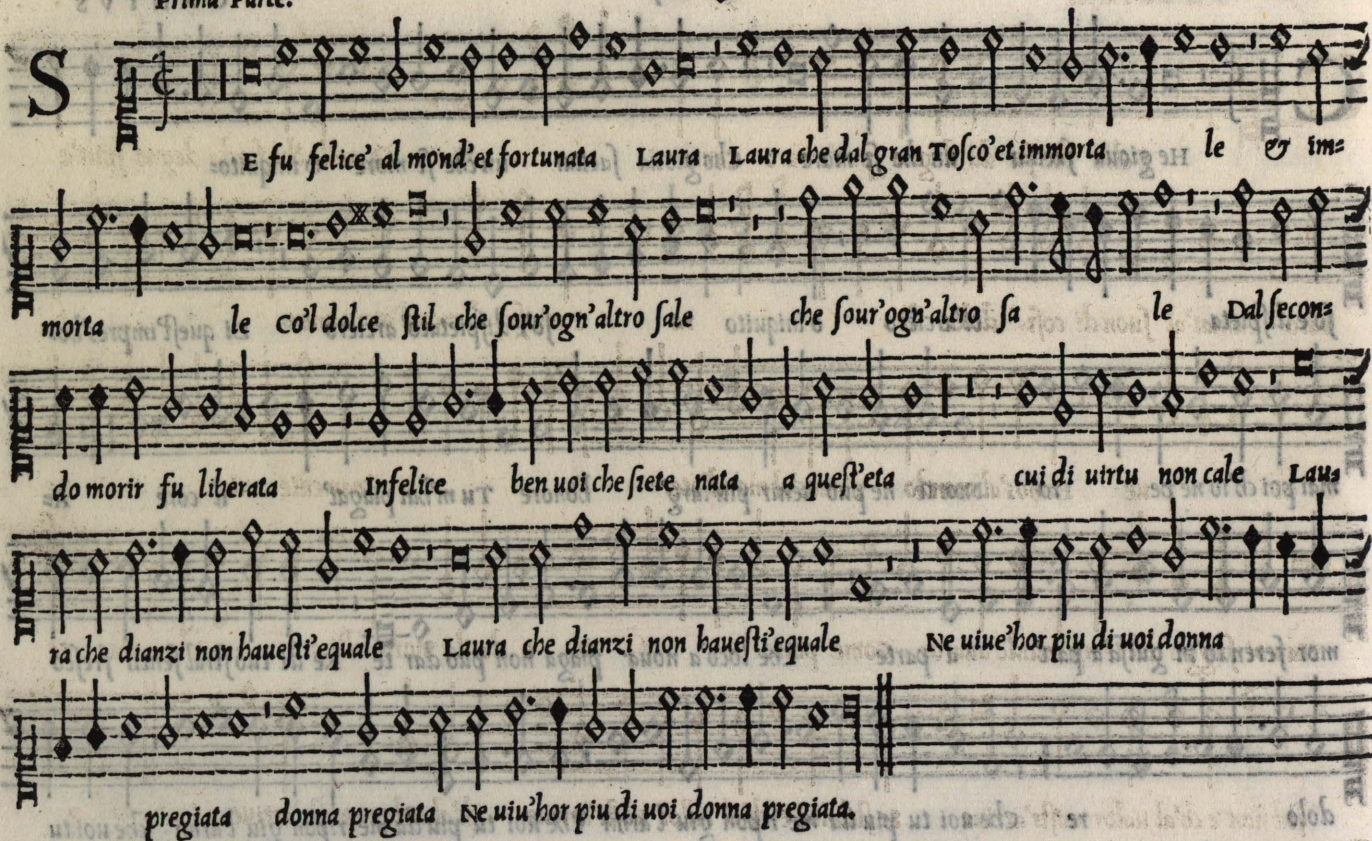 Prima Parte.
S
E fu felice' al mond'et fortunata Laura Laura che dal gran Tosco'et immorta le & im=
morta le Co'l dolce ſtil che ſour'ogn'altro ſale che ſour'ogn'altro ſa le Dal ſecon=
do morir fu liberata Infelice ben uoi che ſiete nata a queſt'eta cui di uirtu non cale Lau=
ra che dianzi non haueſti'equale Laura che dianzi non haueſti'equale Ne uiue'hor piu di uoi donna
pregiata donna pregiata Ne uiu'hor piu di uoi donna pregiata.